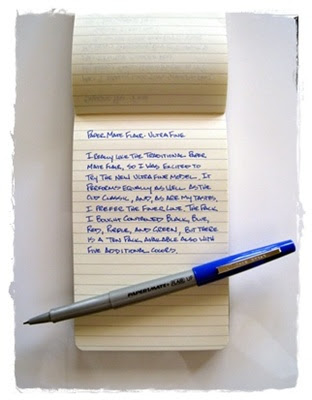 PAPER MATE FLAIR: ULTRA FINE
I REALLY LIKE THE TRADITIONAL PAPER
MATE FLAIR, SO I WAS EXCITED TO
TRY THE NEW ULTRA FINE MODEL. IT
PERFORMS EQUALLY AS WELL AS THE
OLD CLASSIC, AND, AS ARE MY TASTES,
I PREFER THE FINER LINE. THE PACK
I BOUGHT CONTAINED BLACK, BLUE,
RED, PURPLE, AND GREEN, BUT THERE
IS A TEN PACK AVAILABLE ALSO WITH
FIVE ADDITIONAL COLORS.
PAPER MATE FLAIR UF